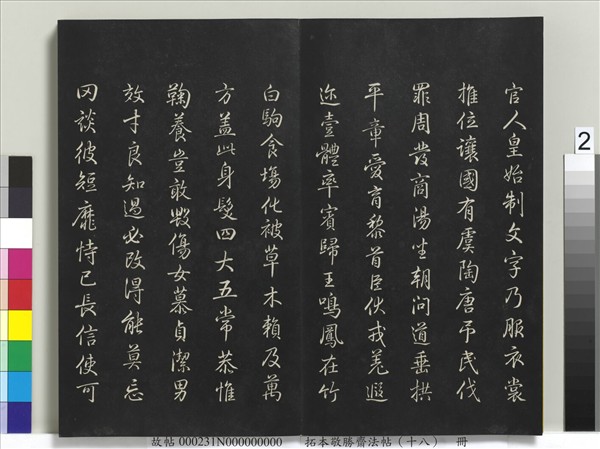 官人皇始制文字乃服衣裳
推位讓國有虞陶唐弔民伐
罪周發商湯坐朝問道垂拱
平章愛育黎首臣伏戎羌遐
迩壹體率賓歸王鳴鳳在竹
白駒食場化被草木賴及萬
方盖此身髮四大五常恭惟
鞠養豈敢毀傷女慕貞潔男
效才良知過必改得能莫忘
罔談彼短靡恃己長信使可
2
故帖 000231N000000000 拓本敬勝齋法帖（十八） 冊